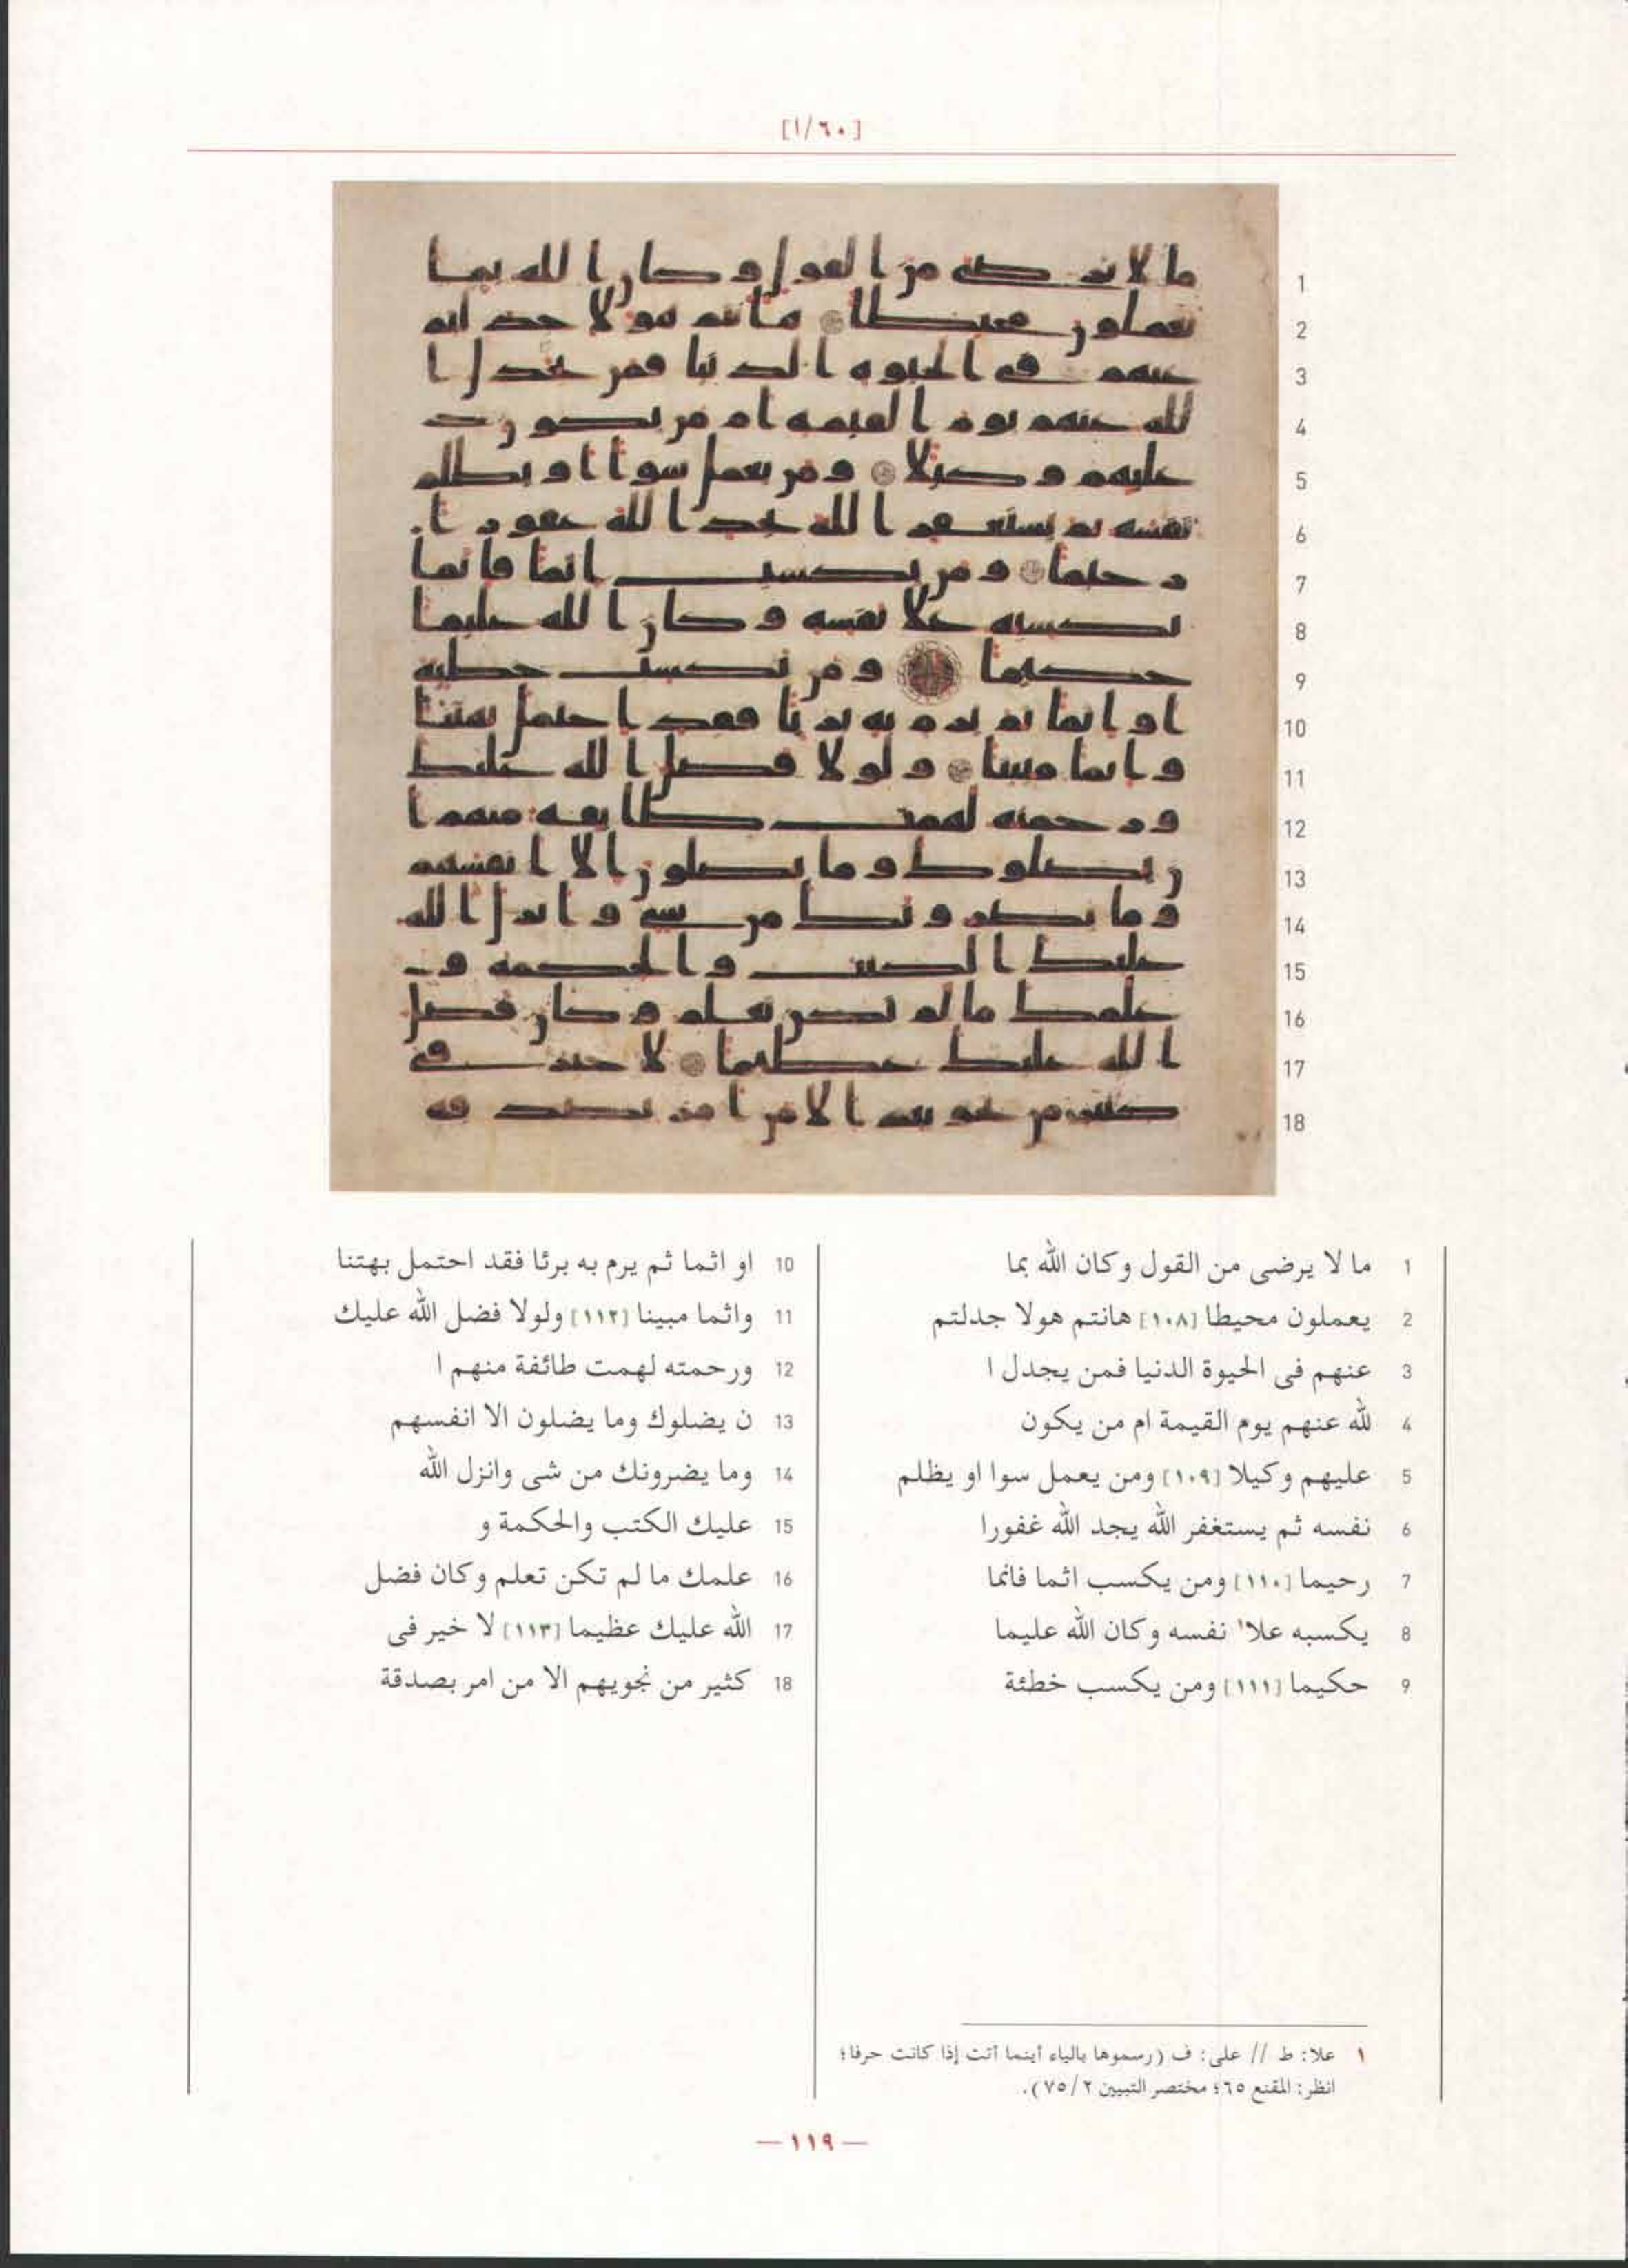 [٦٠/ا]
1 ما لا يرضى من القول وكان الله بما
2 يعملون محيطا [١٠٨] هانتم هولا جدلتم
3 عنهم فى الحيوة الدنيا فمن يجدل ا
4 لله عنهم يوم القيمة ام من يكون
5 عليهم وكيلا [١٠٩] ومن يعمل سوا او يظلم
6 نفسه ثم يستغفر الله يجد الله غفورا
7 رحيما [١١٠] ومن يكسب اثما فانما
8 يكسبه علا١ نفسه وكان الله عليما
9 حكيما [١١١] ومن يكسب خطئة
10 او اثما ثم يرم به برئا فقد احتمل بهتنا
11 واثما مبينا [١١٢] ولولا فضل الله عليك
12 ورحمته لهمت طائفة منهم ا
13 ن يضلوك وما يضلون الا انفسهم
14 وما يضرونك من شى وانزل الله
15 عليك الكتب والحكمة و
16 علمك ما لم تكن تعلم وكان فضل
17 الله عليك عظيما [١١٣] لا خير فى
18 كثير من نجويهم الا من امر بصدقة
١ علا: ط // على: ف (رسموها بالياء أينما أتت إذا كانت حرفا؛
انظر: المقنع ٦٥؛ مختصر التبيين ٧٥/٢).
— ١١٩ —